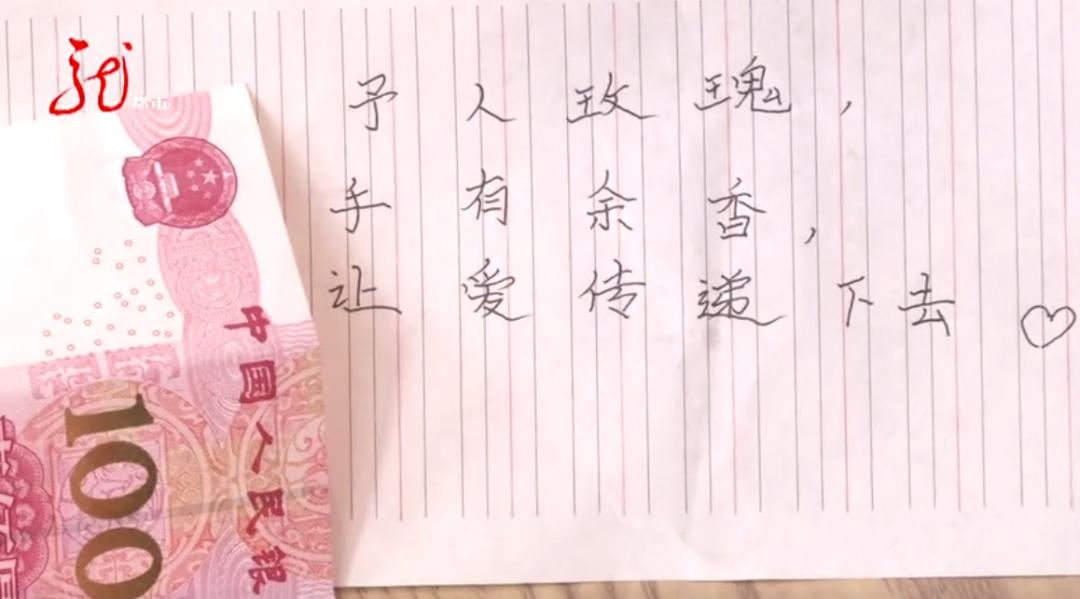 龙 都市
予人玫瑰，
手有余香，
让爱传递下去
中国人民银
100